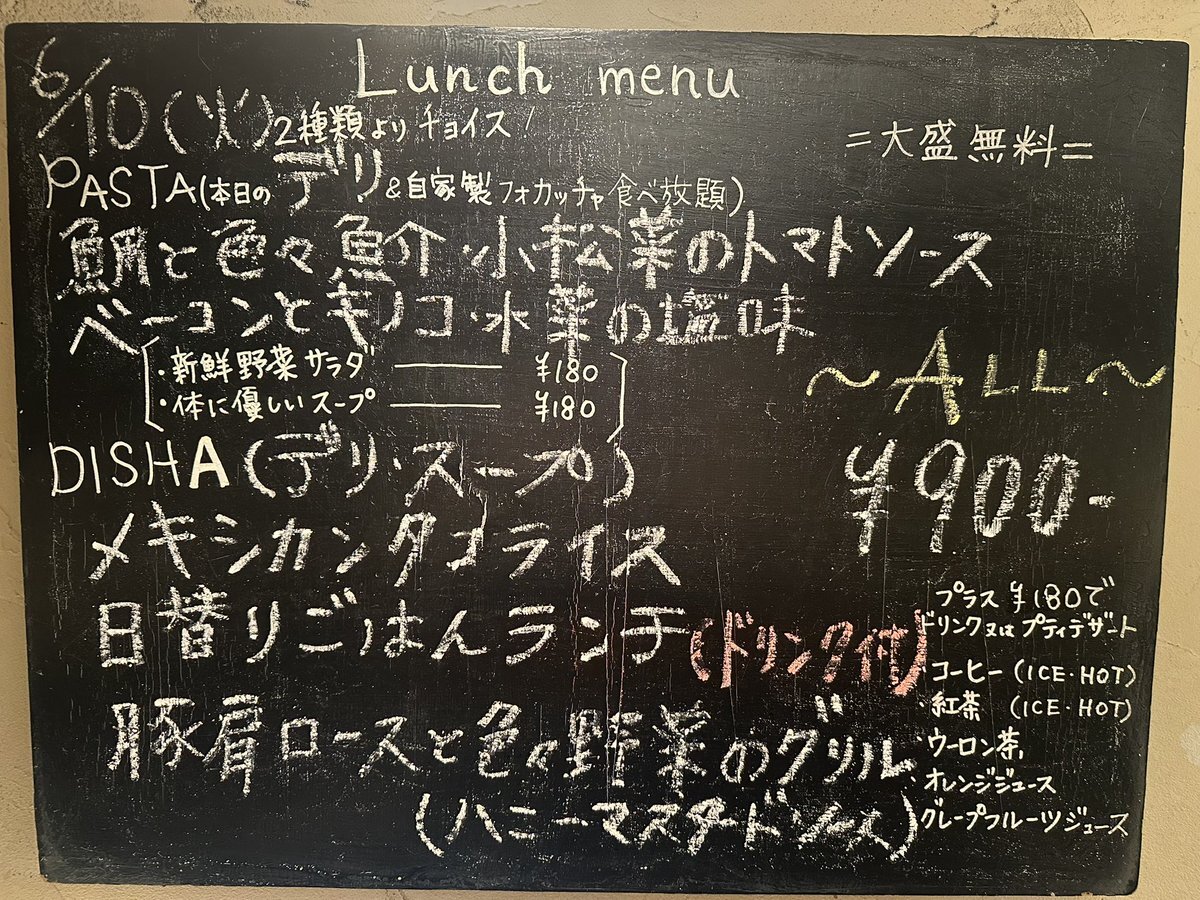 Lunch menu
6/10(火) 2種類よりチョイス!
=大盛無料=
PASTA(本日のデリ&自家製フォカッチャ食べ放題)
鯛と色々魚介・小松菜のトマトソース
ベーコンとキノコ・水菜の塩味
・新鮮野菜サラダ —— ¥180
・体に優しいスープ —— ¥180
〜ALL〜
¥900-
DISHA(デリ・スープ)
メキシカンタコライス
日替りごはんランチ(ドリンク付)
豚肩ロースと色々野菜のグリル
(ハニーマスタードソース)
プラス¥180で
ドリンク又はプティデザート
・コーヒー(ICE・HOT)
・紅茶 (ICE・HOT)
・ウーロン茶
・オレンジジュース
・グレープフルーツジュース